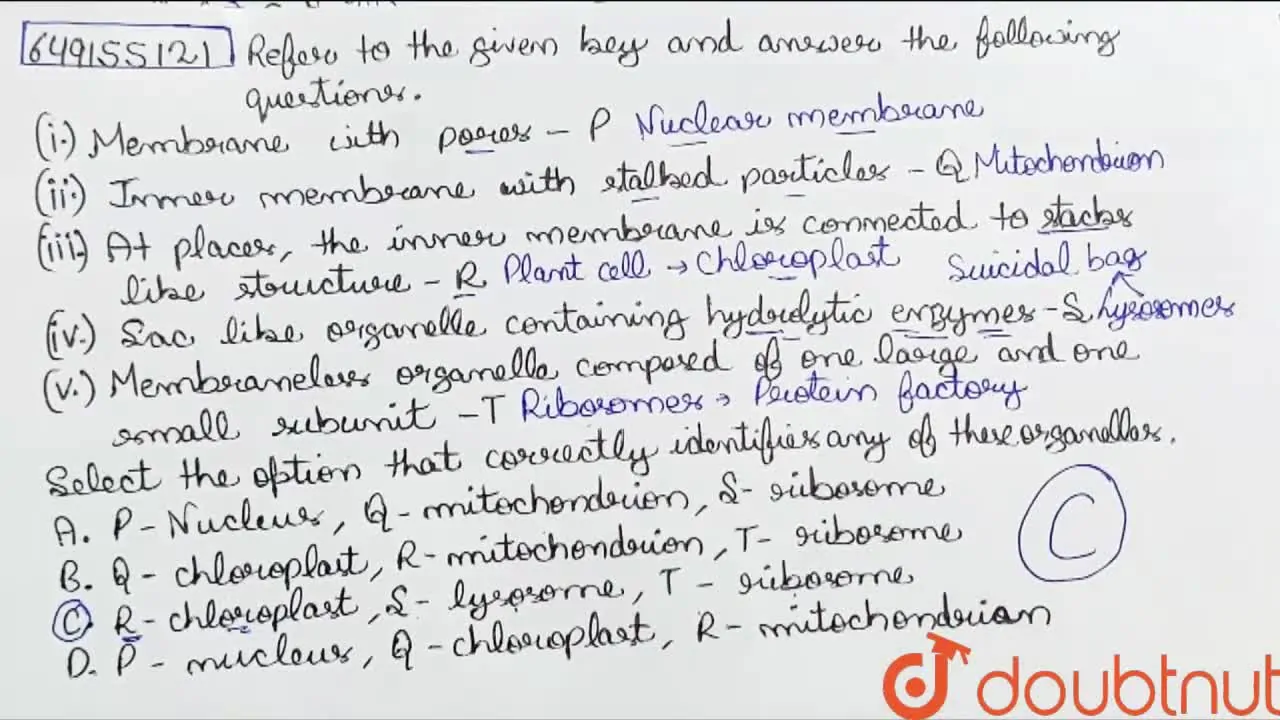 649155121 Refer to the given key and answer the following
questions.
(i.) Membrane with pores - P Nuclear membrane
(ii) Inner membrane with stalked particles - Q Mitochondrion
(iii.) At places, the inner membrane is connected to stacks
like structure - R Plant cell → Chloroplast Suicidal bag
(iv.) Sac like organelle containing hydrolytic enzymes - S Lysosomes
(v.) Membraneless organelle composed of one large and one
small subunit - T Ribosomes → Protein factory
Select the option that correctly identifies any of these organelles.
A. P - Nucleus, Q - mitochondrion, S - ribosome
B. Q - chloroplast, R - mitochondrion, T - ribosome
C R - chloroplast, S - lysosome, T - ribosome
D. P - nucleus, Q - chloroplast, R - mitochondrion
C
doubtnut